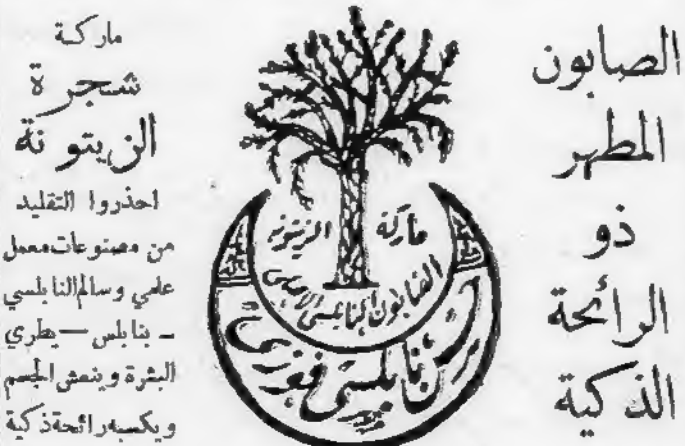 الصابون
المطهر
ذو
الرائحة
الذكية
ماركة الزيتونة
الصابون النابلسي الاصلي
نابلسي فوزي
ماركة
شجرة
الزيتونة
احذروا التقليد
من مصنوعات معمل
علمي وسالم النابلسي
ـ بنابلس — يطري
البشرة وينعش الجسم
ويكسبه رائحة ذكية